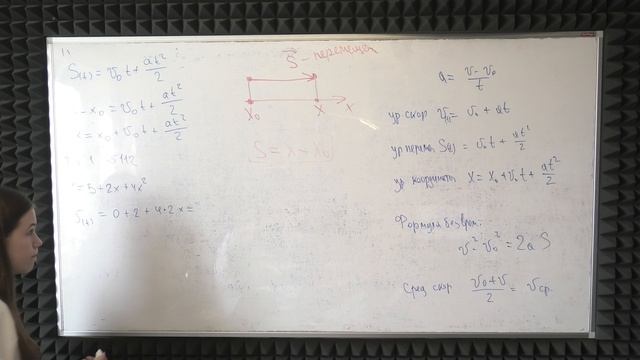 S(t) = v₀t + at²/2
- x₀ = v₀t + at²/2
x = x₀ + v₀t + at²/2
= 5 + 2x + 4x²
S(t) = 0 + 2 + 4·2x =
S - перемещ
x₀ x x
S = x - x₀
a = v - v₀/t
ур скор v(t) = v₀ + at
ур перем S(t) = v₀t + at²/2
ур координаты x = x₀ + v₀t + at²/2
Формула без врем:
v² - v₀² = 2aS
Сред скор v₀ + v/2 = vср